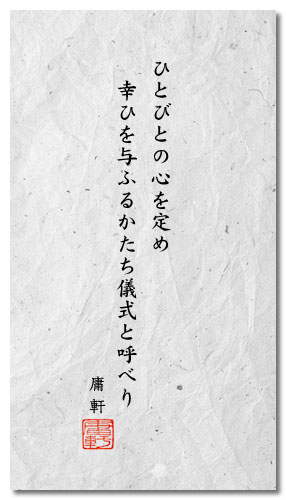 ひとびとの心を定め
幸ひを与ふるかたち儀式と呼べり
庸軒
庸軒